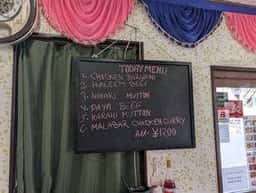 TODAY MENU
1. CHICKEN BIRIYANI
2. HALEEM BEEF
3. NIHARI MUTTON
4. PAYA BEEF
5. KARAHI MUTTON
6. MALABAR CHICKEN CURRY
¥1200